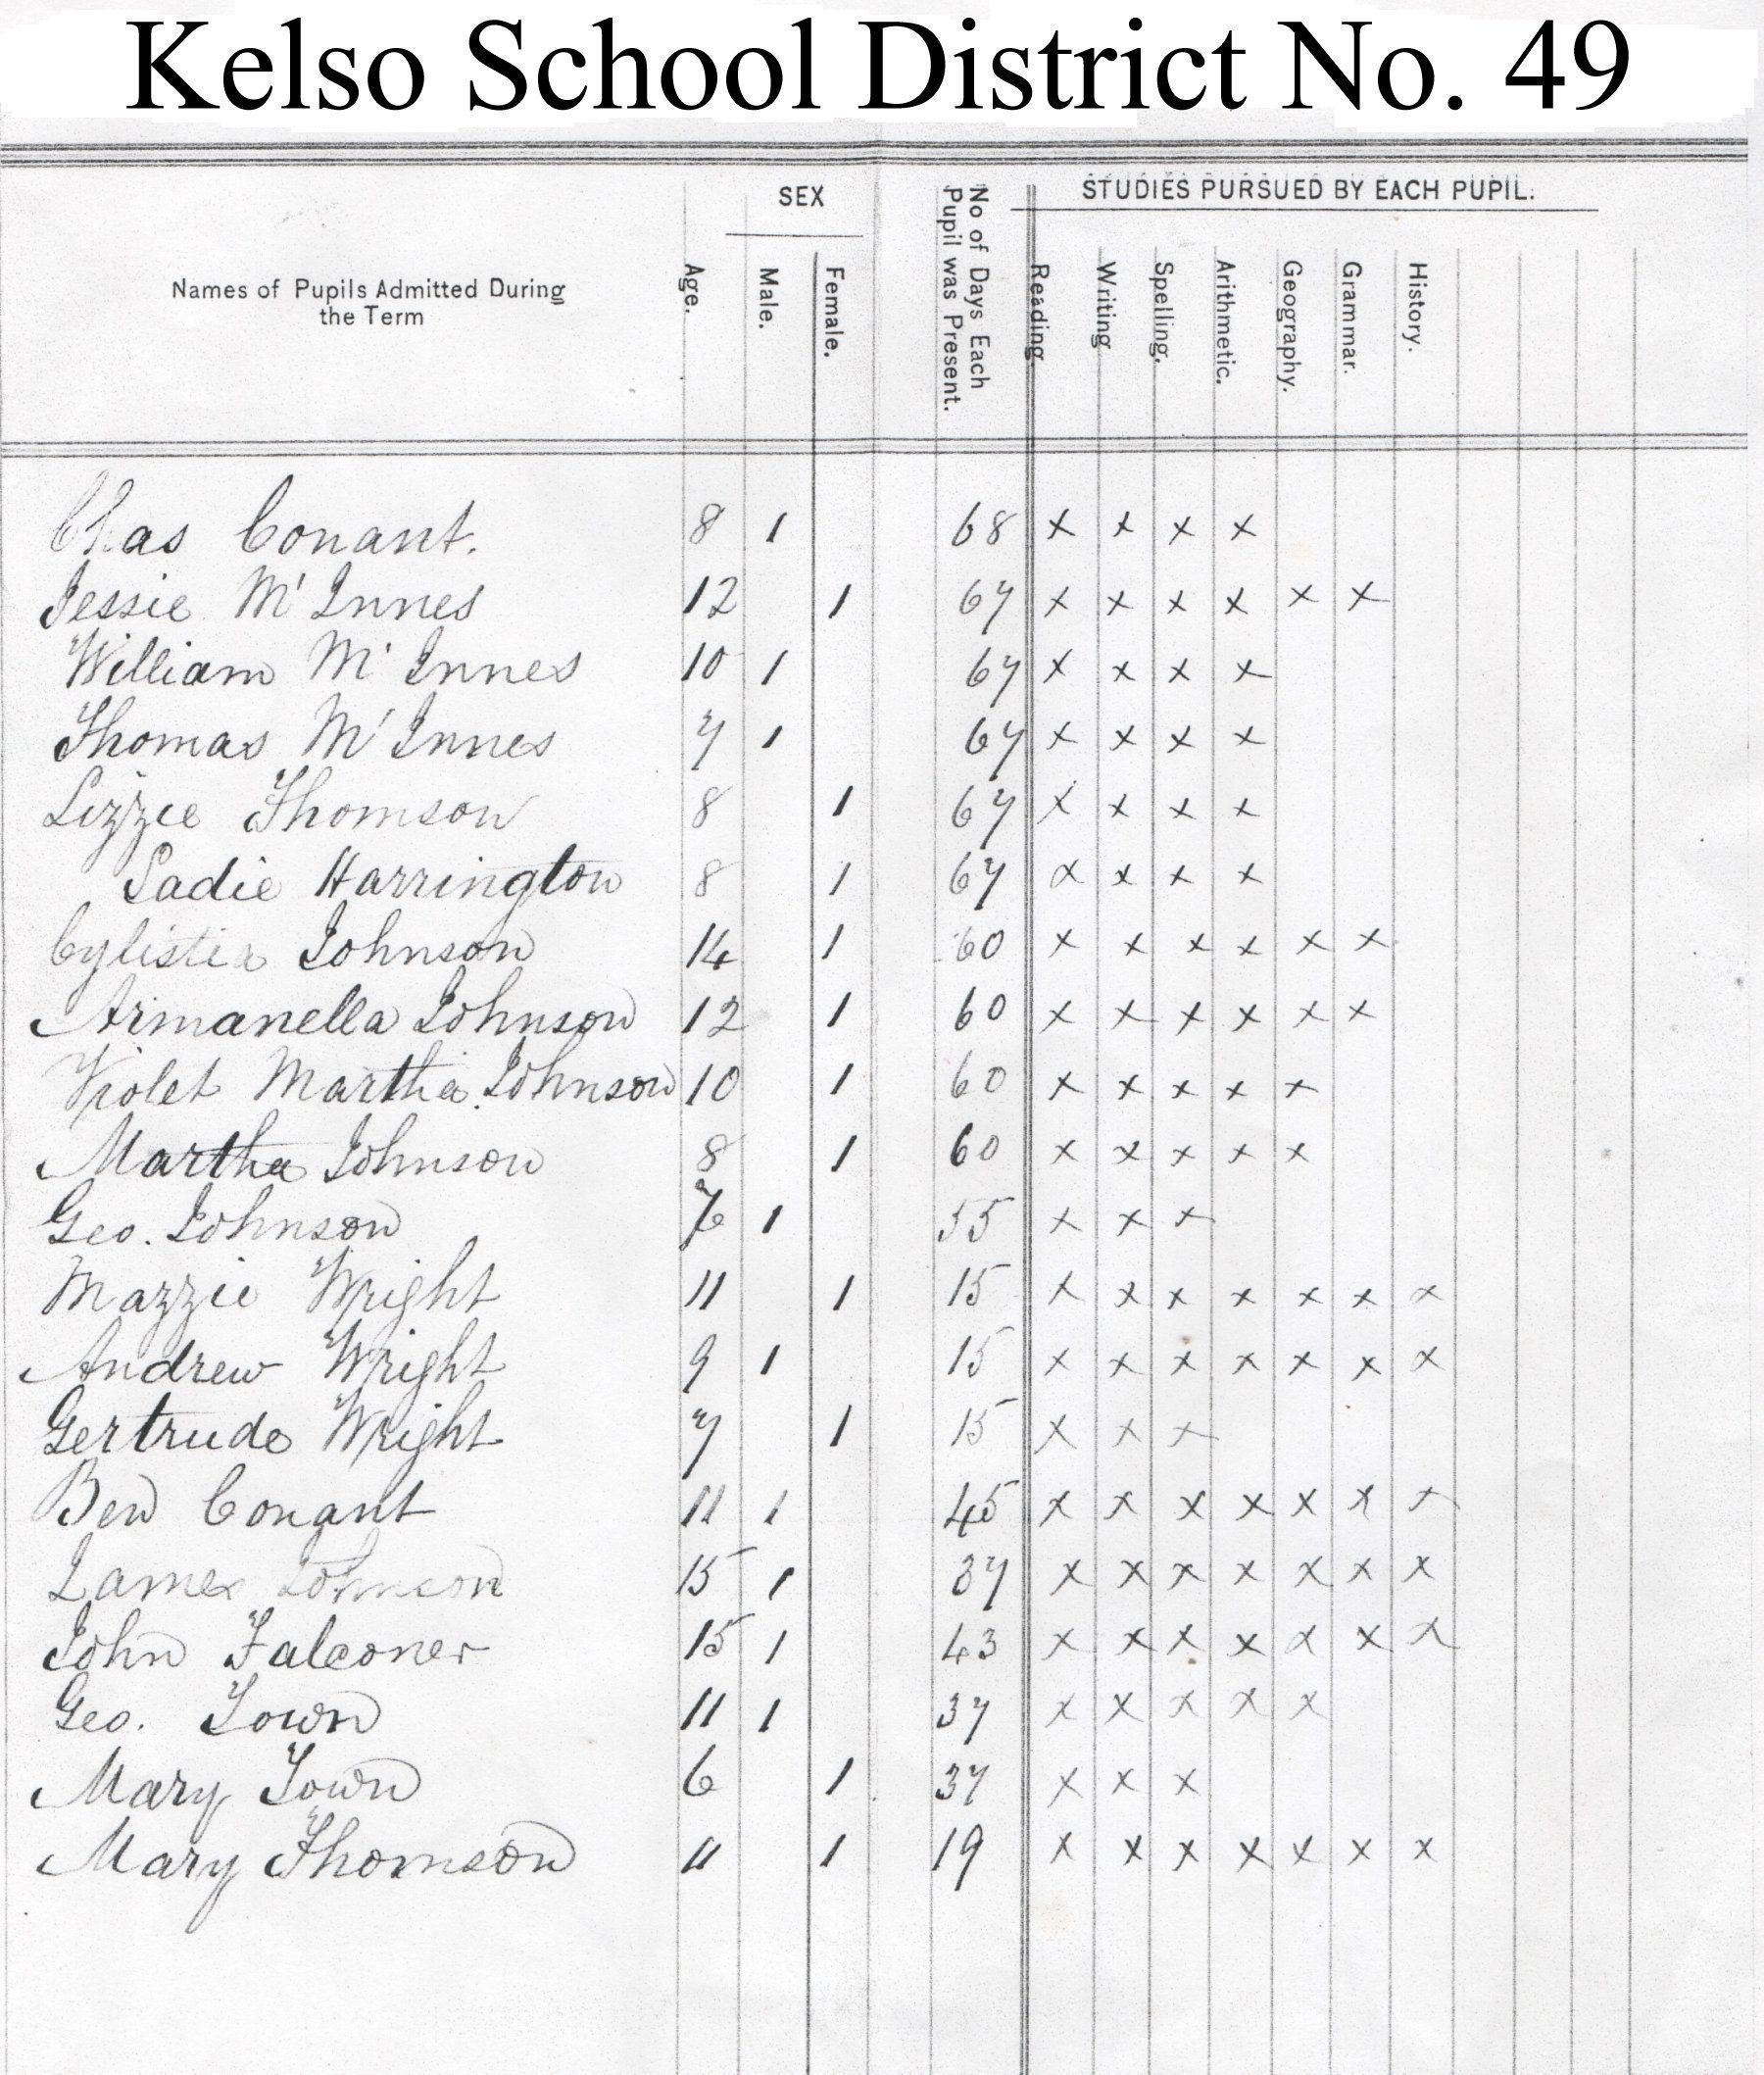 Kelso School District No. 49
SEX
STUDIES PURSUED BY EACH PUPIL.
Names of Pupils Admitted During
the Term
Age.
Male.
Female.
No of Days Each
Pupil was Present.
Reading.
Writing
Spelling.
Arithmetic.
Geography.
Grammar.
History.
Chas Conant. 8 1 68 x x x x
Jessie M'Innes 12 1 67 x x x x x x
William M'Innes 10 1 67 x x x x
Thomas M'Innes 7 1 67 x x x x
Lizzie Thomson 8 1 67 x x x x
Sadie Harrington 8 1 67 x x x x
Cylistia Johnson 14 1 60 x x x x x x
Armanella Johnson 12 1 60 x x x x x x
Violet Martha Johnson 10 1 60 x x x x x
Martha Johnson 8 1 60 x x x x x
Geo. Johnson 1 55 x x x
Mazzie Wright 11 1 15 x x x x x x x
Andrew Wright 9 1 15 x x x x x x x
Gertrude Wright 7 1 15 x x x
Ben Conant 11 1 45 x x x x x x x
James Johnson 15 1 37 x x x x x x x
John Falconer 15 1 43 x x x x x x x
Geo. Town 11 1 37 x x x x x
Mary Town 6 1 37 x x x
Mary Thomson 11 1 19 x x x x x x x